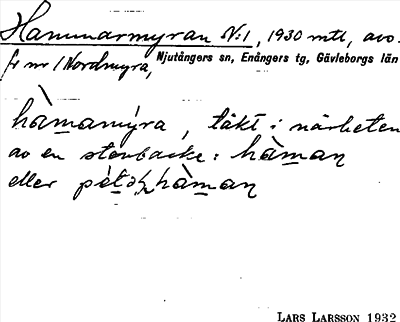 Hammarmyran N:1, 1930 mtl, avs.
fr nr 1 Nordmyra, Njutångers sn, Enångers tg, Gävleborgs län
hàmamýra, täkt i närheten
av en stenbacke: hàman
eller hàman
LARS LARSSON 1932